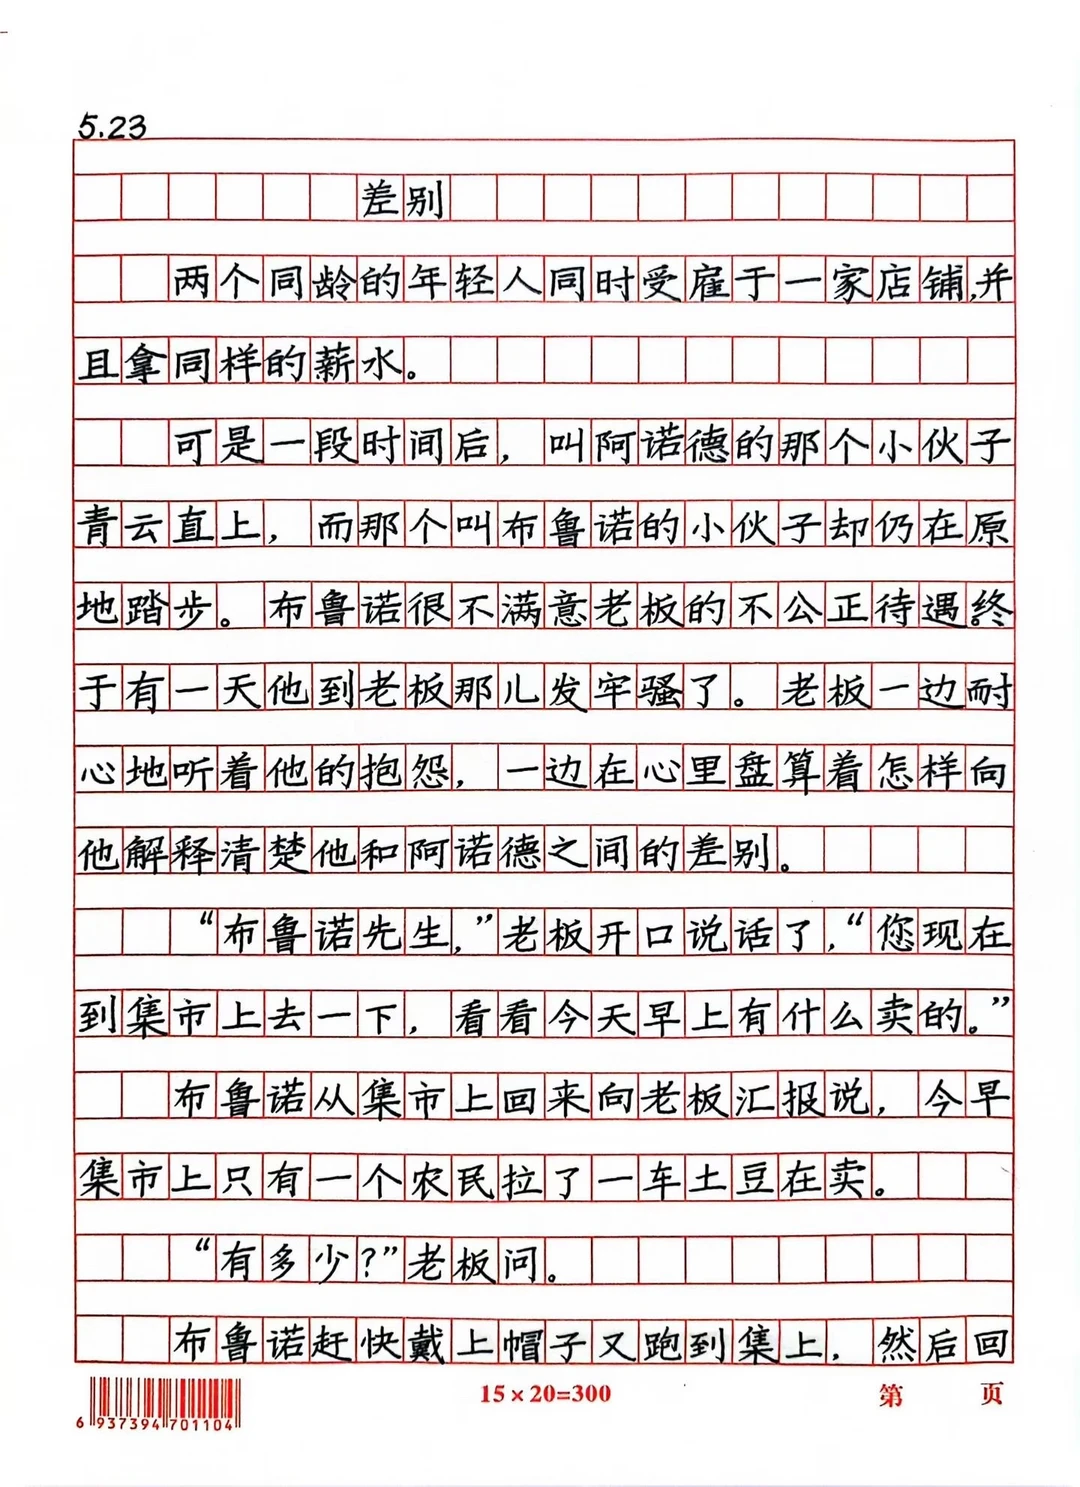 5.23
差别
两个同龄的年轻人同时受雇于一家店铺,并
且拿同样的薪水。
可是一段时间后，叫阿诺德的那个小伙子
青云直上，而那个叫布鲁诺的小伙子却仍在原
地踏步。布鲁诺很不满意老板的不公正待遇。终
于有一天他到老板那儿发牢骚了。老板一边耐
心地听着他的抱怨，一边在心里盘算着怎样向
他解释清楚他和阿诺德之间的差别。
“布鲁诺先生,”老板开口说话了,“您现在
到集市上去一下，看看今天早上有什么卖的。”
布鲁诺从集市上回来向老板汇报说，今早
集市上只有一个农民拉了一车土豆在卖。
“有多少?”老板问。
布鲁诺赶快戴上帽子又跑到集上，然后回
6 937394 701104
15×20=300
第 页